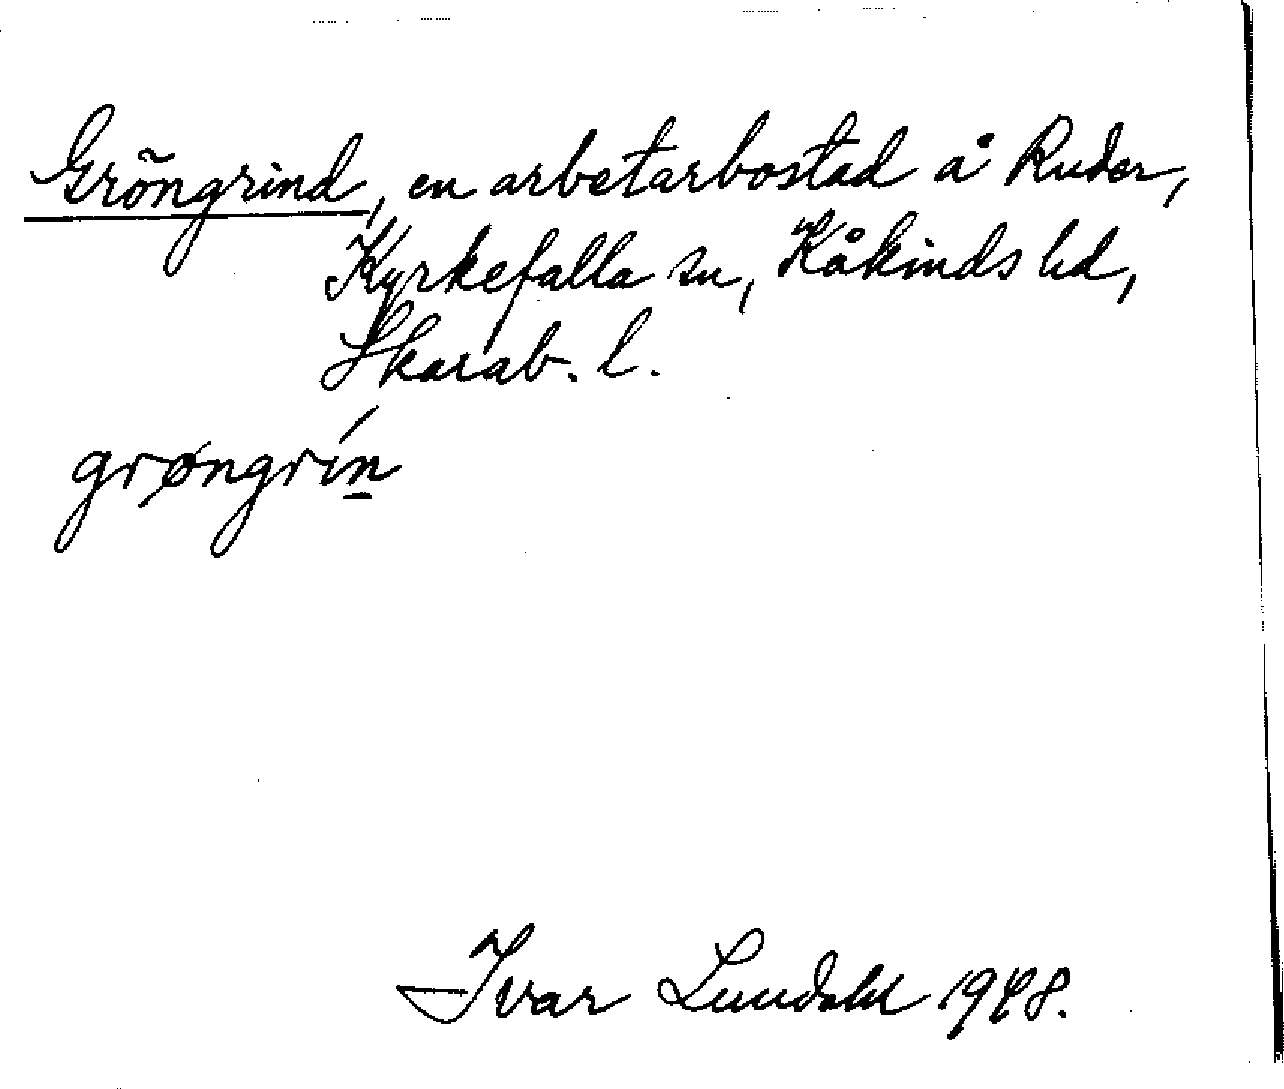 Gröngrind, en arbetarbostad å Ruder,
Kyrkefalla sn, Kåkinds hd,
Skarab. l.
grøngrín
Ivar Lundahl 1948.